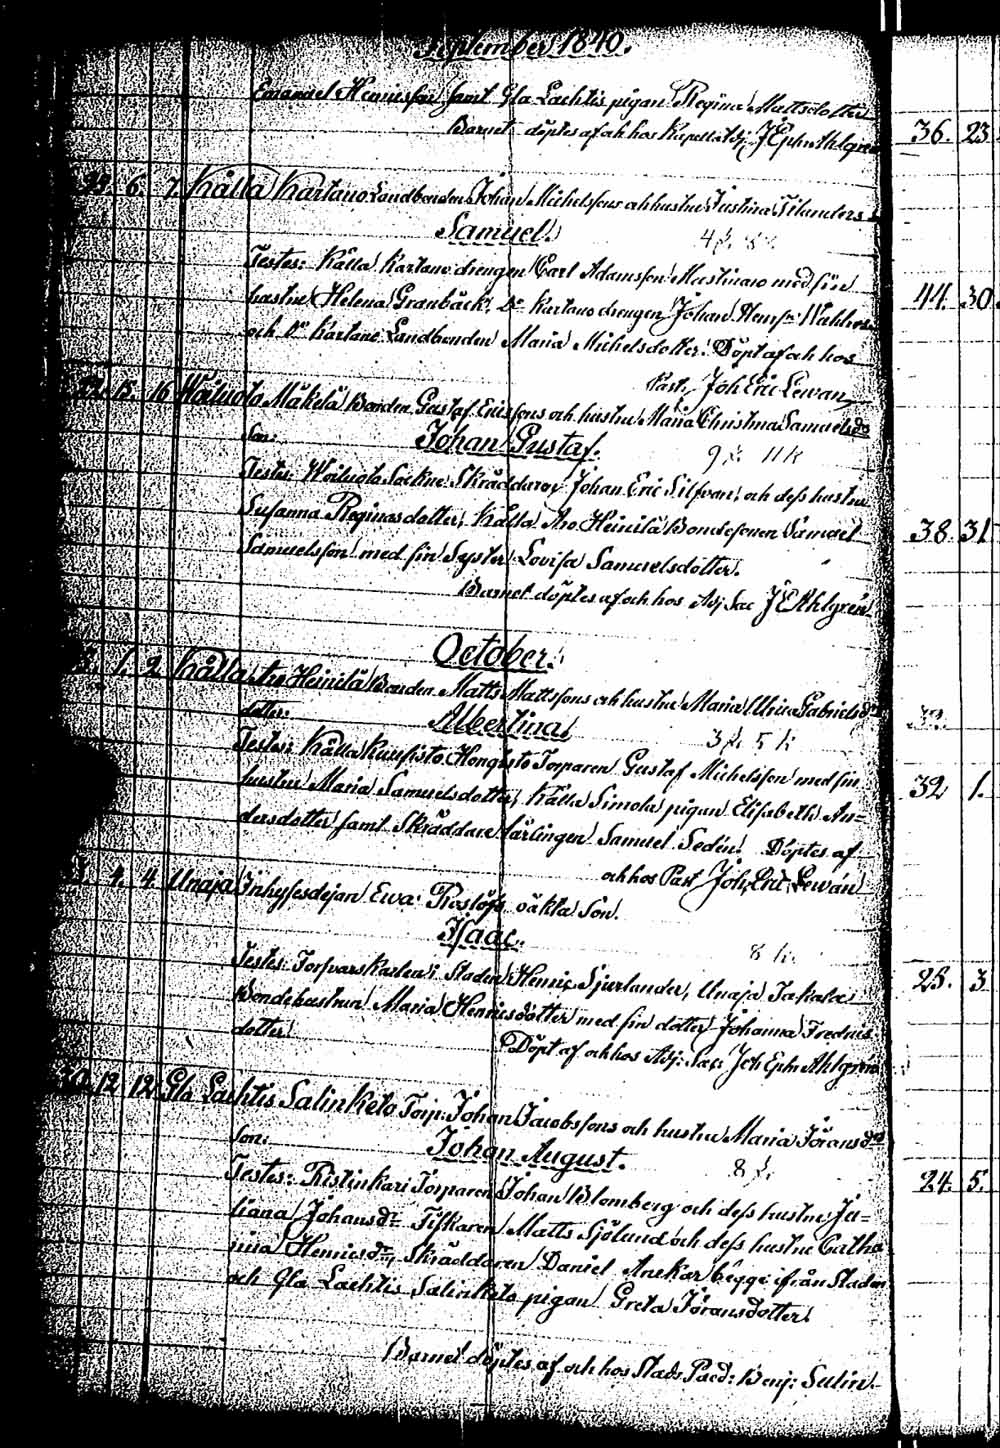 September 1840.
Emanuel Henricsson samt Gla Lachtis pigan Regina Mattsdotter
Barnet döptes af och hos Kapells Adj. J Ephr Ahlgren 36. 23.
6. 7. Kålla Kartano Landbonden Johan Michelssons och hustru Justina Tilanders
Samuel.
Testes: Kålla Kartano drengen Carl Adamsson Mustinano med sin 44. 30
hustru Helena Granbäck, Do Kartano drengen Johan Henrssn
och Do Kartano Landbonden Maria Michelsdotter. Döpt af och hos
Past. Joh Eric Lewan
15. 16 Woiluoto Mäkelä Bonden Gustaf Ericssons och hustru Maria Christina Samuelsdr
Son: Johan Gustaf.
Testes: Woiluoto Sockne Skräddaren Johan Eric Silfvan och dess hustru
Susanna Reginasdotter, Kålla Aro Heinilä Bondesonen Samuel 38. 31
Samuelsson med sin Syster Lovisa Samuelsdotter.
Barnet döptes af och hos Adj Sac J E Ahlgren
October.
1. 2. Kålla Aro Heinilä Bonden Matts Mattssons och hustru Maria Ulrica Gabrielsdr
dotter: Albertina
3 5
Testes: Kålla Kuusisto Hongisto Torparen Gustaf Michelsson med sin
hustru Maria Samuelsdotter, Kålla Simola pigan Elisabeth An= 32 1.
dersdotter samt Skräddare lärlingen Samuel Sedin. Döptes af
och hos Past Joh. Eric Lewan
4. 4. Unaja Inhysesdejan Ewa Roslöfs oäkta Son.
Isaac.
8
Testes: Torfvarskarlen i Staden Henric Sjurlander, Unaja Takala 25. 3
Bondehustrun Maria Henricsdotter med sin dotter Johanna Fredrics
dotter.
Döpt af och hos Adj: Sac: Joh Ephr Ahlgren
12. 12. Gla Lachtis Salinketo Torp: Johan Jacobssons och hustru Maria Jöransdr
Son: Johan August.
8
Testes: Ristinkari Torparen Johan Blomberg och dess hustru Ju= 24. 5.
liana Johansdr Fiskaren Matts Sjölund och dess hustru Catha
rina Henricsdr, Skräddaren Daniel Anckar begge ifrån Staden
och Gla Lachtis Salinketo pigan Greta Jöransdotter.
Barnet döptes af och hos Stads Paed: Benj: Salin